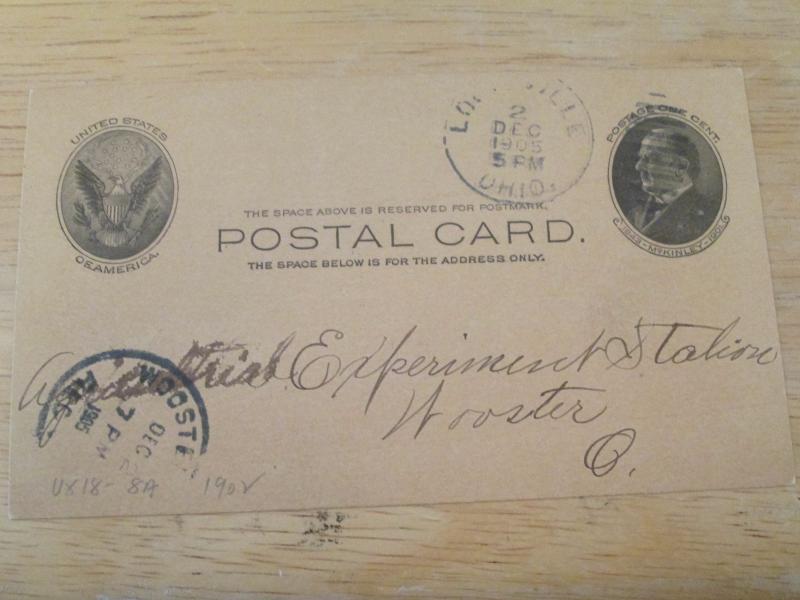 UNITED STATES
OF AMERICA.
2
DEC
1905
5 PM
OHIO.
POSTAGE ONE CENT.
1843-McKINLEY-1901
THE SPACE ABOVE IS RESERVED FOR POSTMARK.
POSTAL CARD.
THE SPACE BELOW IS FOR THE ADDRESS ONLY.
Experiment Station
Wooster
O.
DEC
7 PM
1905
REC'D.
UX18- 8A 1902